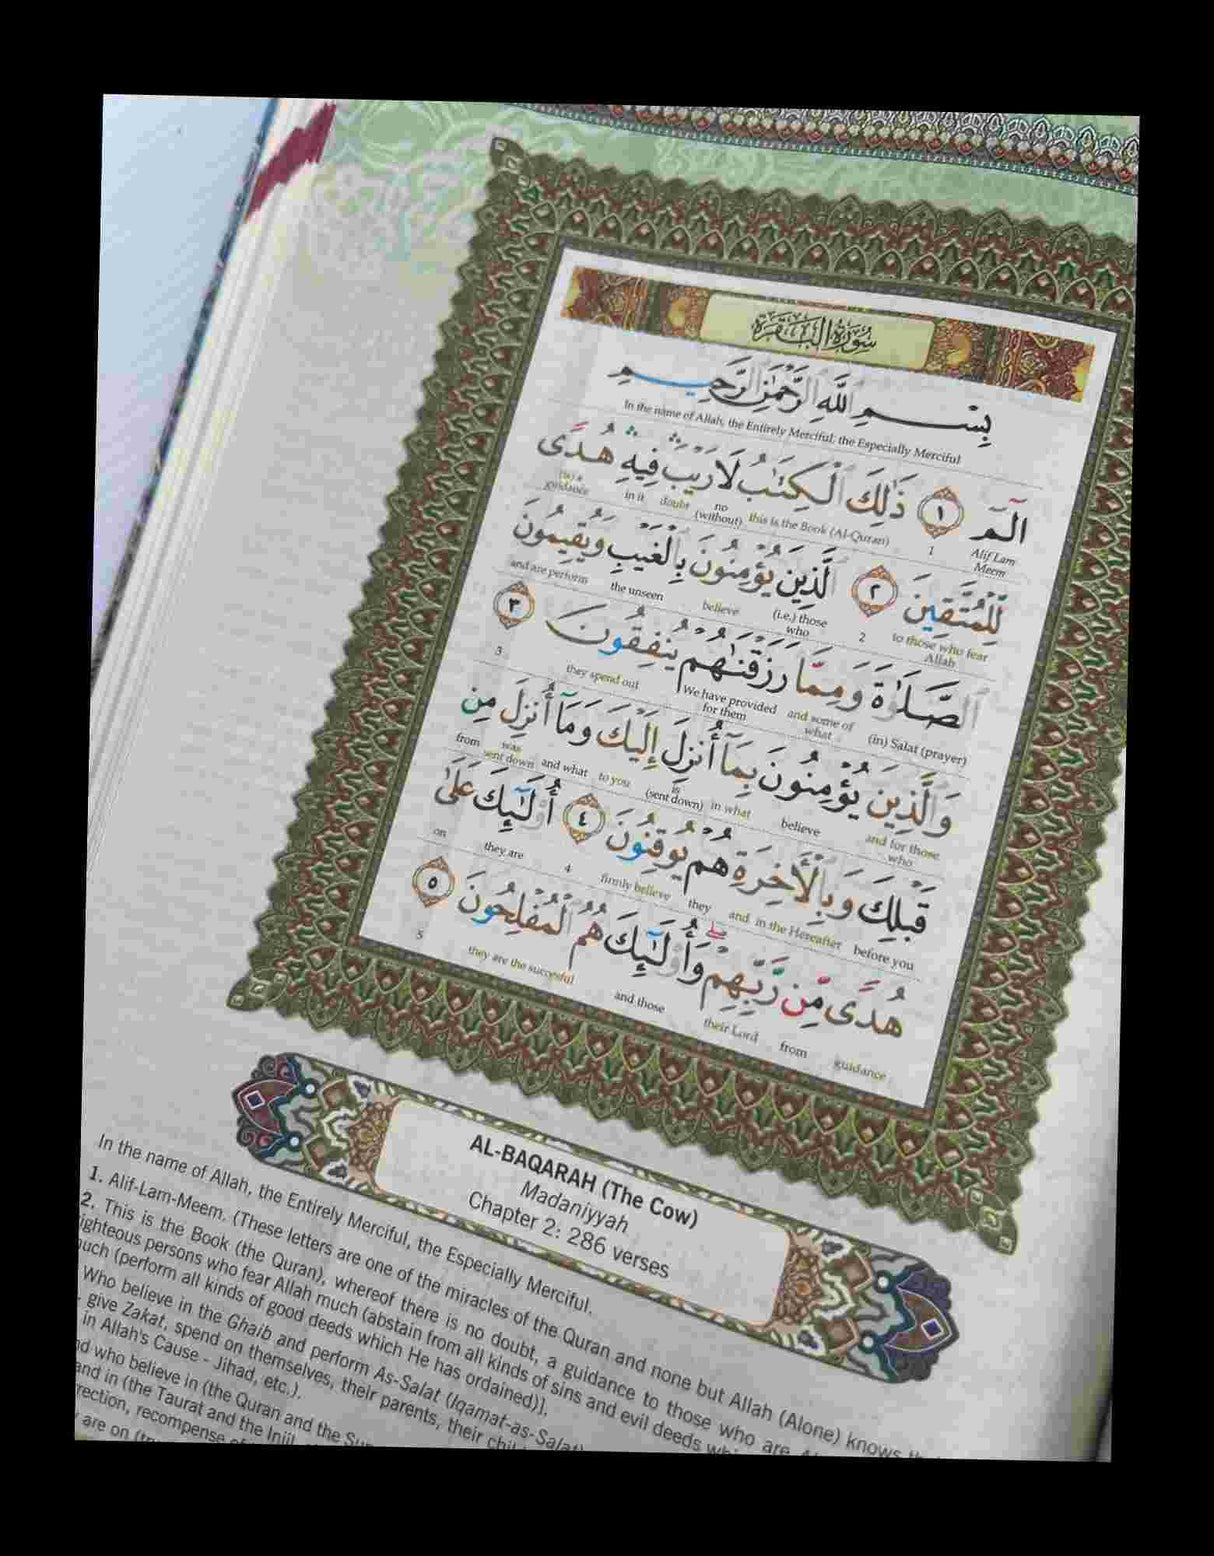 سُورَةُ الْبَقَرَةِ
بِسْمِ اللَّهِ الرَّحْمَٰنِ الرَّحِيمِ
In the name of Allah, the Entirely Merciful, the Especially Merciful
الٓمٓ ١ ذَٰلِكَ الْكِتَٰبُ لَا رَيْبَ ۛ فِيهِ ۛ هُدًى
Alif Lam Meem 1 this is the Book (Al-Quran) no (without) doubt in it (is) a guidance
لِّلْمُتَّقِينَ ٢ الَّذِينَ يُؤْمِنُونَ بِالْغَيْبِ وَيُقِيمُونَ
to those who fear Allah 2 (i.e.) those who believe the unseen and are perform
الصَّلَوٰةَ وَمِمَّا رَزَقْنَٰهُمْ يُنفِقُونَ ٣
(in) Salat (prayer) and some of what We have provided for them they spend out 3
وَالَّذِينَ يُؤْمِنُونَ بِمَآ أُنزِلَ إِلَيْكَ وَمَآ أُنزِلَ مِن
and for those who believe in what is (sent down) to you and what was sent down from
قَبْلِكَ وَبِالْأَخِرَةِ هُمْ يُوقِنُونَ ٤ أُو۟لَٰٓئِكَ عَلَىٰ
before you and in the Hereafter they firmly believe 4 they are on
هُدًى مِّن رَّبِّهِمْ ۖ وَأُو۟لَٰٓئِكَ هُمُ الْمُفْلِحُونَ ٥
guidance from their Lord and those they are the succesful 5
AL-BAQARAH (The Cow)
Madaniyyah
Chapter 2: 286 verses
In the name of Allah, the Entirely Merciful, the Especially Merciful.
1. Alif-Lam-Meem. (These letters are one of the miracles of the Quran and none but Allah (Alone) knows
2. This is the Book (the Quran), whereof there is no doubt, a guidance to those who are
righteous persons who fear Allah much (abstain from all kinds of sins and evil deeds
much (perform all kinds of good deeds which He has ordained)].
Who believe in the Ghaib and perform As-Salat (Iqamat-as-Salat)
give Zakat, spend on themselves, their parents, their
in Allah's Cause - Jihad, etc.).
who believe in (the Quran and the
and in (the Taurat and the Injil
recompense
are on